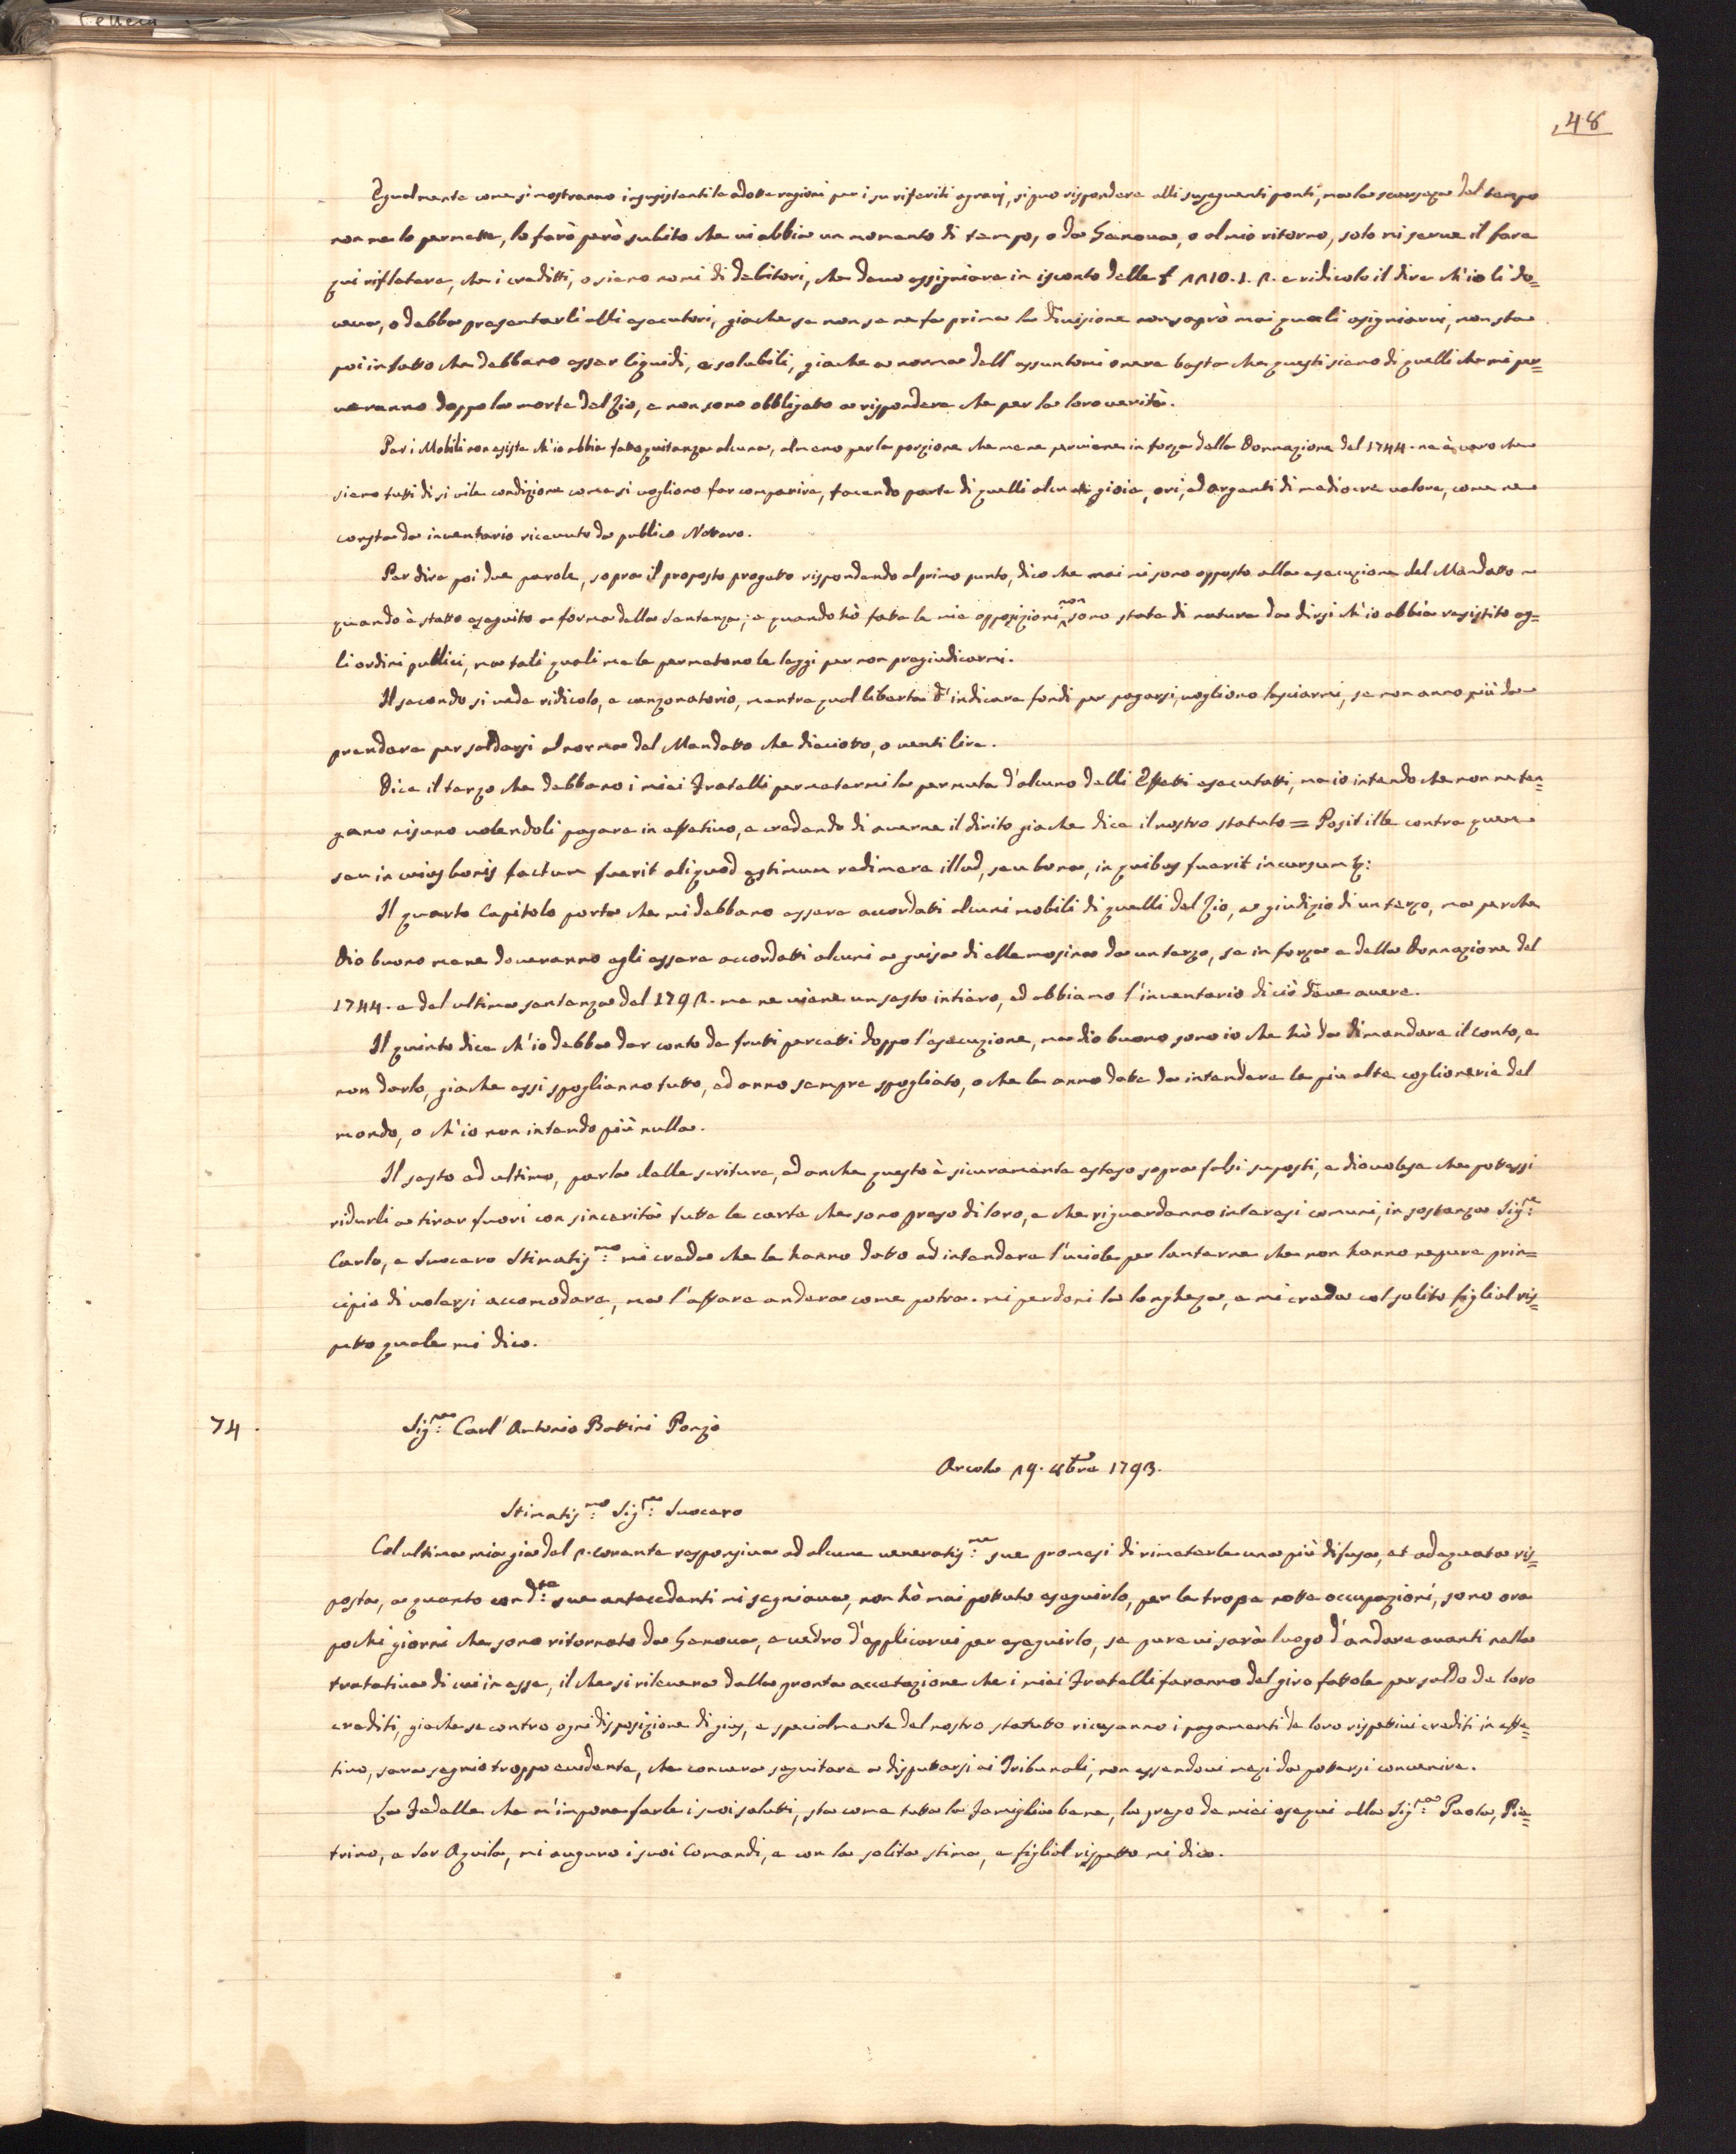 48
Egualmente come si mostranno insusistenti le adotte ragioni per i su riferiti agravj, si puo rispondere alli suseguenti ponti, ma la scarseza del tempo
non me lo permette, lo farò però subito che vi abbia un momento di tempo, o da Genova, o al mio ritorno, solo mi serve il fare
qui rifletere, che i creditti, o sieno nomi di debitori, che devo assigniare in isconto delle £ 1110.1.2. e ridicolo il dire ch'io li do=
veva, o debba presentarli alli esecutori, giache se non se ne fa prima la divisione non saprò mai quali asigniarvi, non sta
poi in fatto che debbano esser liquidi, e solubili, giache a norma dell'assuntomi onere basta che questi sieno di quelli che mi per=
veranno doppo la morte del Zio, e non sono obbligato a rispondere che per la loro verità.
Per i Mobili non esiste ch'io abbia fatto quitanza alcuna, almeno per la porzione che me ne perviene in forza della Donnazione del 1744. ne è vero che
sieno tutti di si vile condizione come si vogliono far comparire, facendo parte di quelli alcune gioie, ori, ed argenti di mediocre valore, come ne
consta da inventario ricevuto da publico Nottaro.
Per dire poi due parole, sopra il proposto progetto rispondendo al primo punto, dico che mai mi sono opposto alla esecuzione del Mandatto
quando è statto eseguito a forma della Sentenza; e quando hò fatte le mie oppozizioni non sono state di natura da dirsi ch'io abbia resistito ag=
li ordini publici, ma tali quali me le permetono le leggi per non pregiudicarmi.
Il secondo si vede ridicolo, e canzonatorio, mentre qual liberta d'indicare fondi per pagarsi, vogliono lasciarmi, se non anno più da
prendere per saldarsi al norma del Mandatto che dieciotto, o venti lire.
Dice il terzo che debbano i miei Fratelli permetermi la permuta d'alcuno delli Effetti esecutatti, ma io intendo che non ne ten=
gano nisuno volendoli pagare in effetivo, e credendo di averne il dirito giache dice il nostro statuto = Posit ille contra quem
seu in cuius bonis factum fuerit aliquod estimum redimere illud, seu bona, in quibus fuerit incursum &:
Il quarto Capitolo porta che mi debbano essere accordatti alcuni mobili di quelli del Zio, a giudizio di un terzo, ma perche
Dio buono me ne doveranno egli essere accordatti alcuni a guisa di ellemosina da un terzo, se in forza e della Donnazione del
1744. e del ultima sentenza del 1792. me ne viene un sesto intiero, ed abbiamo l'inventario di ciò deve avere.
Il quinto dice ch'io debba dar conto de frutti percetti doppo l'esecuzione, ma dio buono sono io che hò da dimandare il conto, e
non darlo, giache essi spoglianno tutto, ed anno sempre spogliato, o che le anno date da intendere le piu alte coglionerie del
mondo, o ch'io non intendo più nulla.
Il sesto ed ultimo, parla delle scriture, ed anche questo è sicuramente esteso sopra falsi suposti, e dio volese che potessi
ridurli a tirar fuori con sincerità tutte le carte che sono preso di loro, e che riguardanno interesi comuni, in sostanza Sig:re
Carlo, e Suocero Stimatis:mo mi creda che le hanno datto ad intendere l'uciole per lanterne che non hanno nepure prin=
cipio di volersi accomodare, ma l'affare andera come potra. mi perdoni la longheza, e mi creda col solito figlial ris=
petto quale mi dico.
74.
Sig:re Carl'Antonio Battini Ponzò
Arcola 19. 9bre 1793.
Stimatis:mo Sig:re Suocero
Col ultima mia gia del 2. corente responsiva ad alcune veneratis:me sue promesi di rimeterle una più difusa, et adequata ris=
posta, a quanto con d:te sue antecedenti mi segniava, non hò mai pottuto eseguirlo, per le trope notte occupazioni, sono ora
pochi giorni che sono ritornato da Genova, e vedro d'applicarvi per eseguirlo, se pure vi sarà luogo d'andare avanti nella
tratativa di cui in esse, il che si rilevera dalla pronta accetazione che i miei Fratelli faranno del giro fattole per saldo de loro
crediti, giache se contro ogni disposizione di gius, e specialmente del nostro statutto ricusanno i pagamenti de loro rispettivi crediti in effe=
tivo, sara segnio troppo evidente, che convera seguitare a disputtarsi ai Tribunali, non essendovi mezi da pottersi convenire.
La Fedelle che m'impone farle i suoi salutti, sta come tutta la Famiglia bene, la prego de miei osequi alla Sig:ra Paola, Pie=
trino, e Sor Aquila, mi auguro i suoi Comandi, e con la solita stima, e figlial rispetto mi dico.